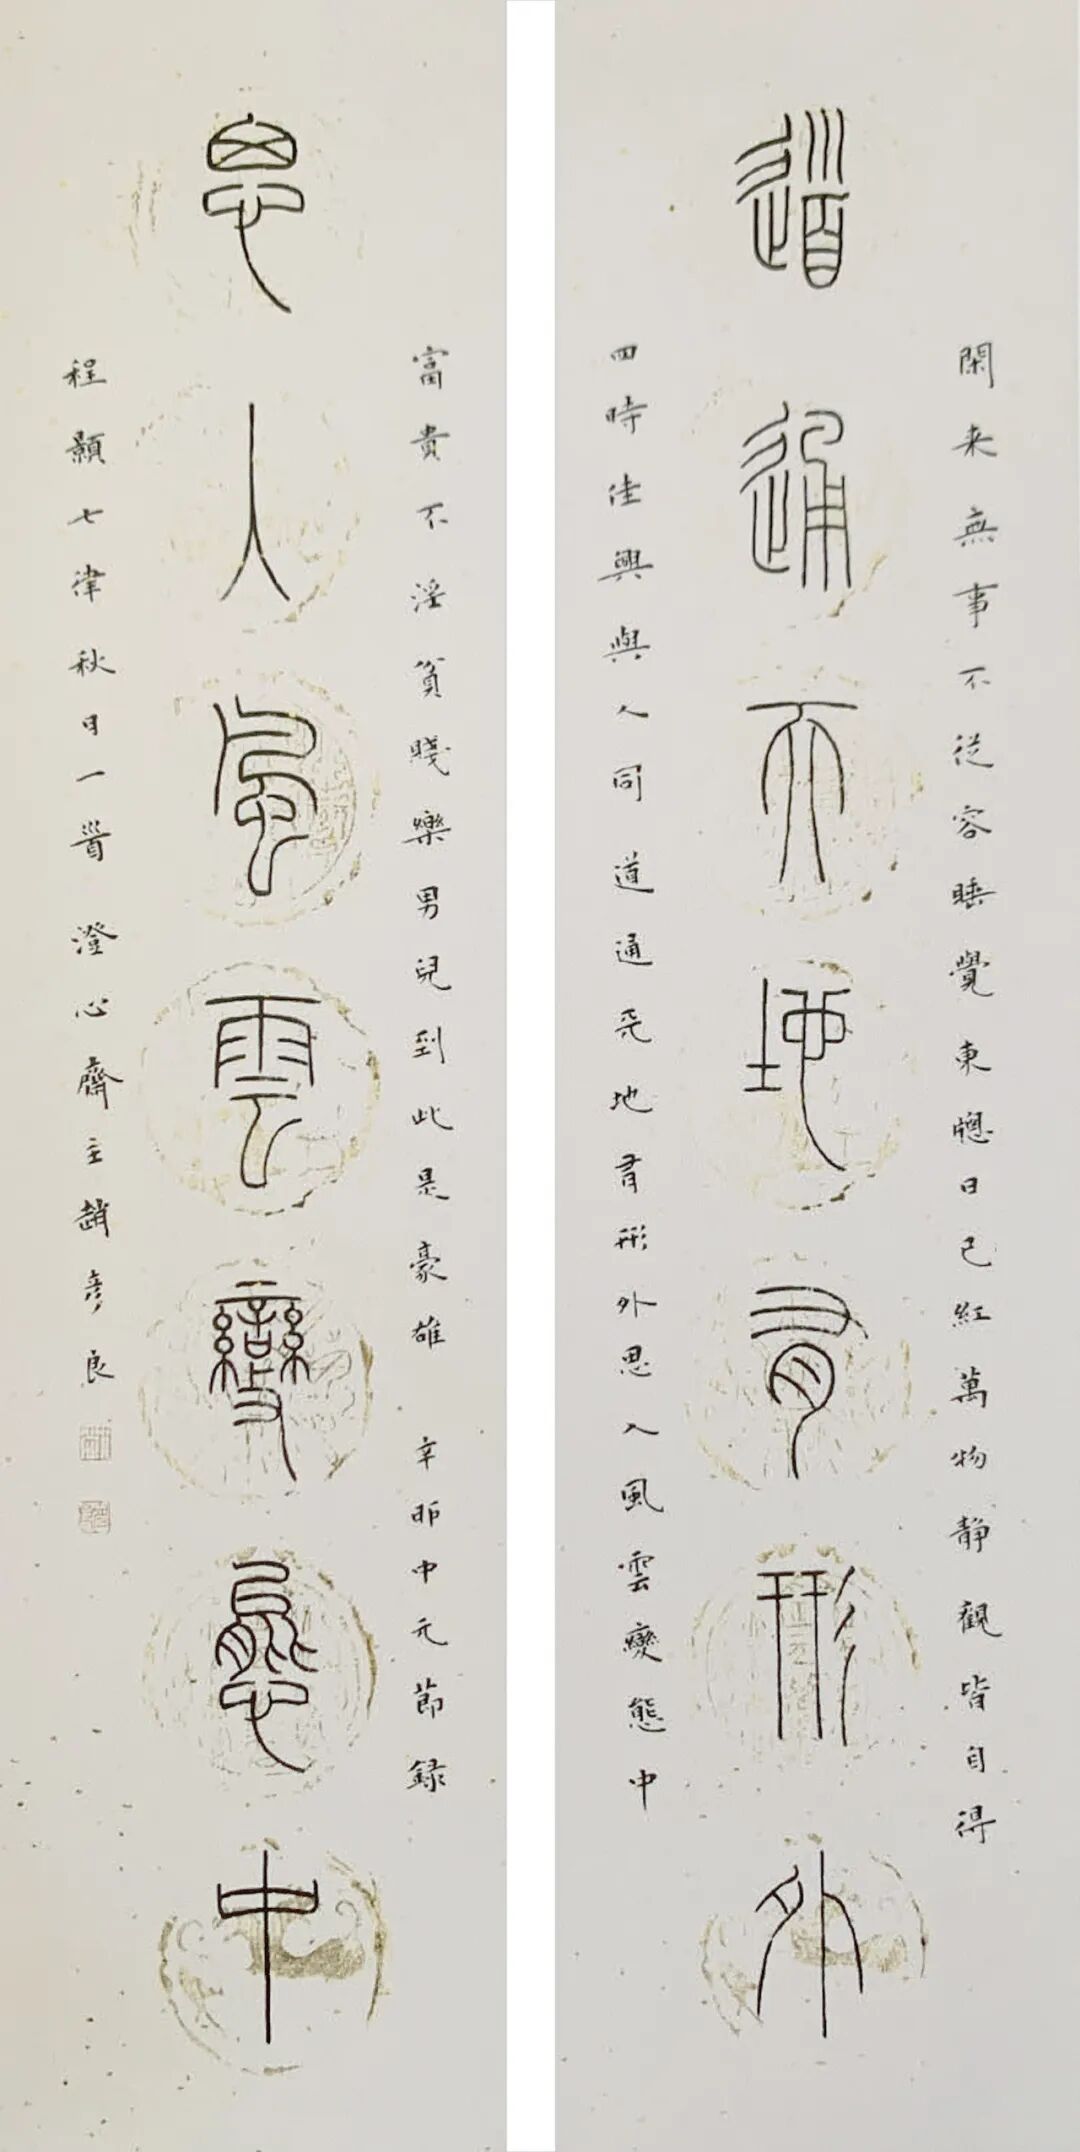 閑来無事不從容睡覺東牕日已紅萬物静觀皆自得
道通天地有形外
四時佳興與人同道通天地有形外思入風雲變態中
富貴不淫貧賤樂男兒到此是豪雄 辛卯中元節録
思入風雲變態中
程顥七律秋日一首 澄心齋主趙彦良